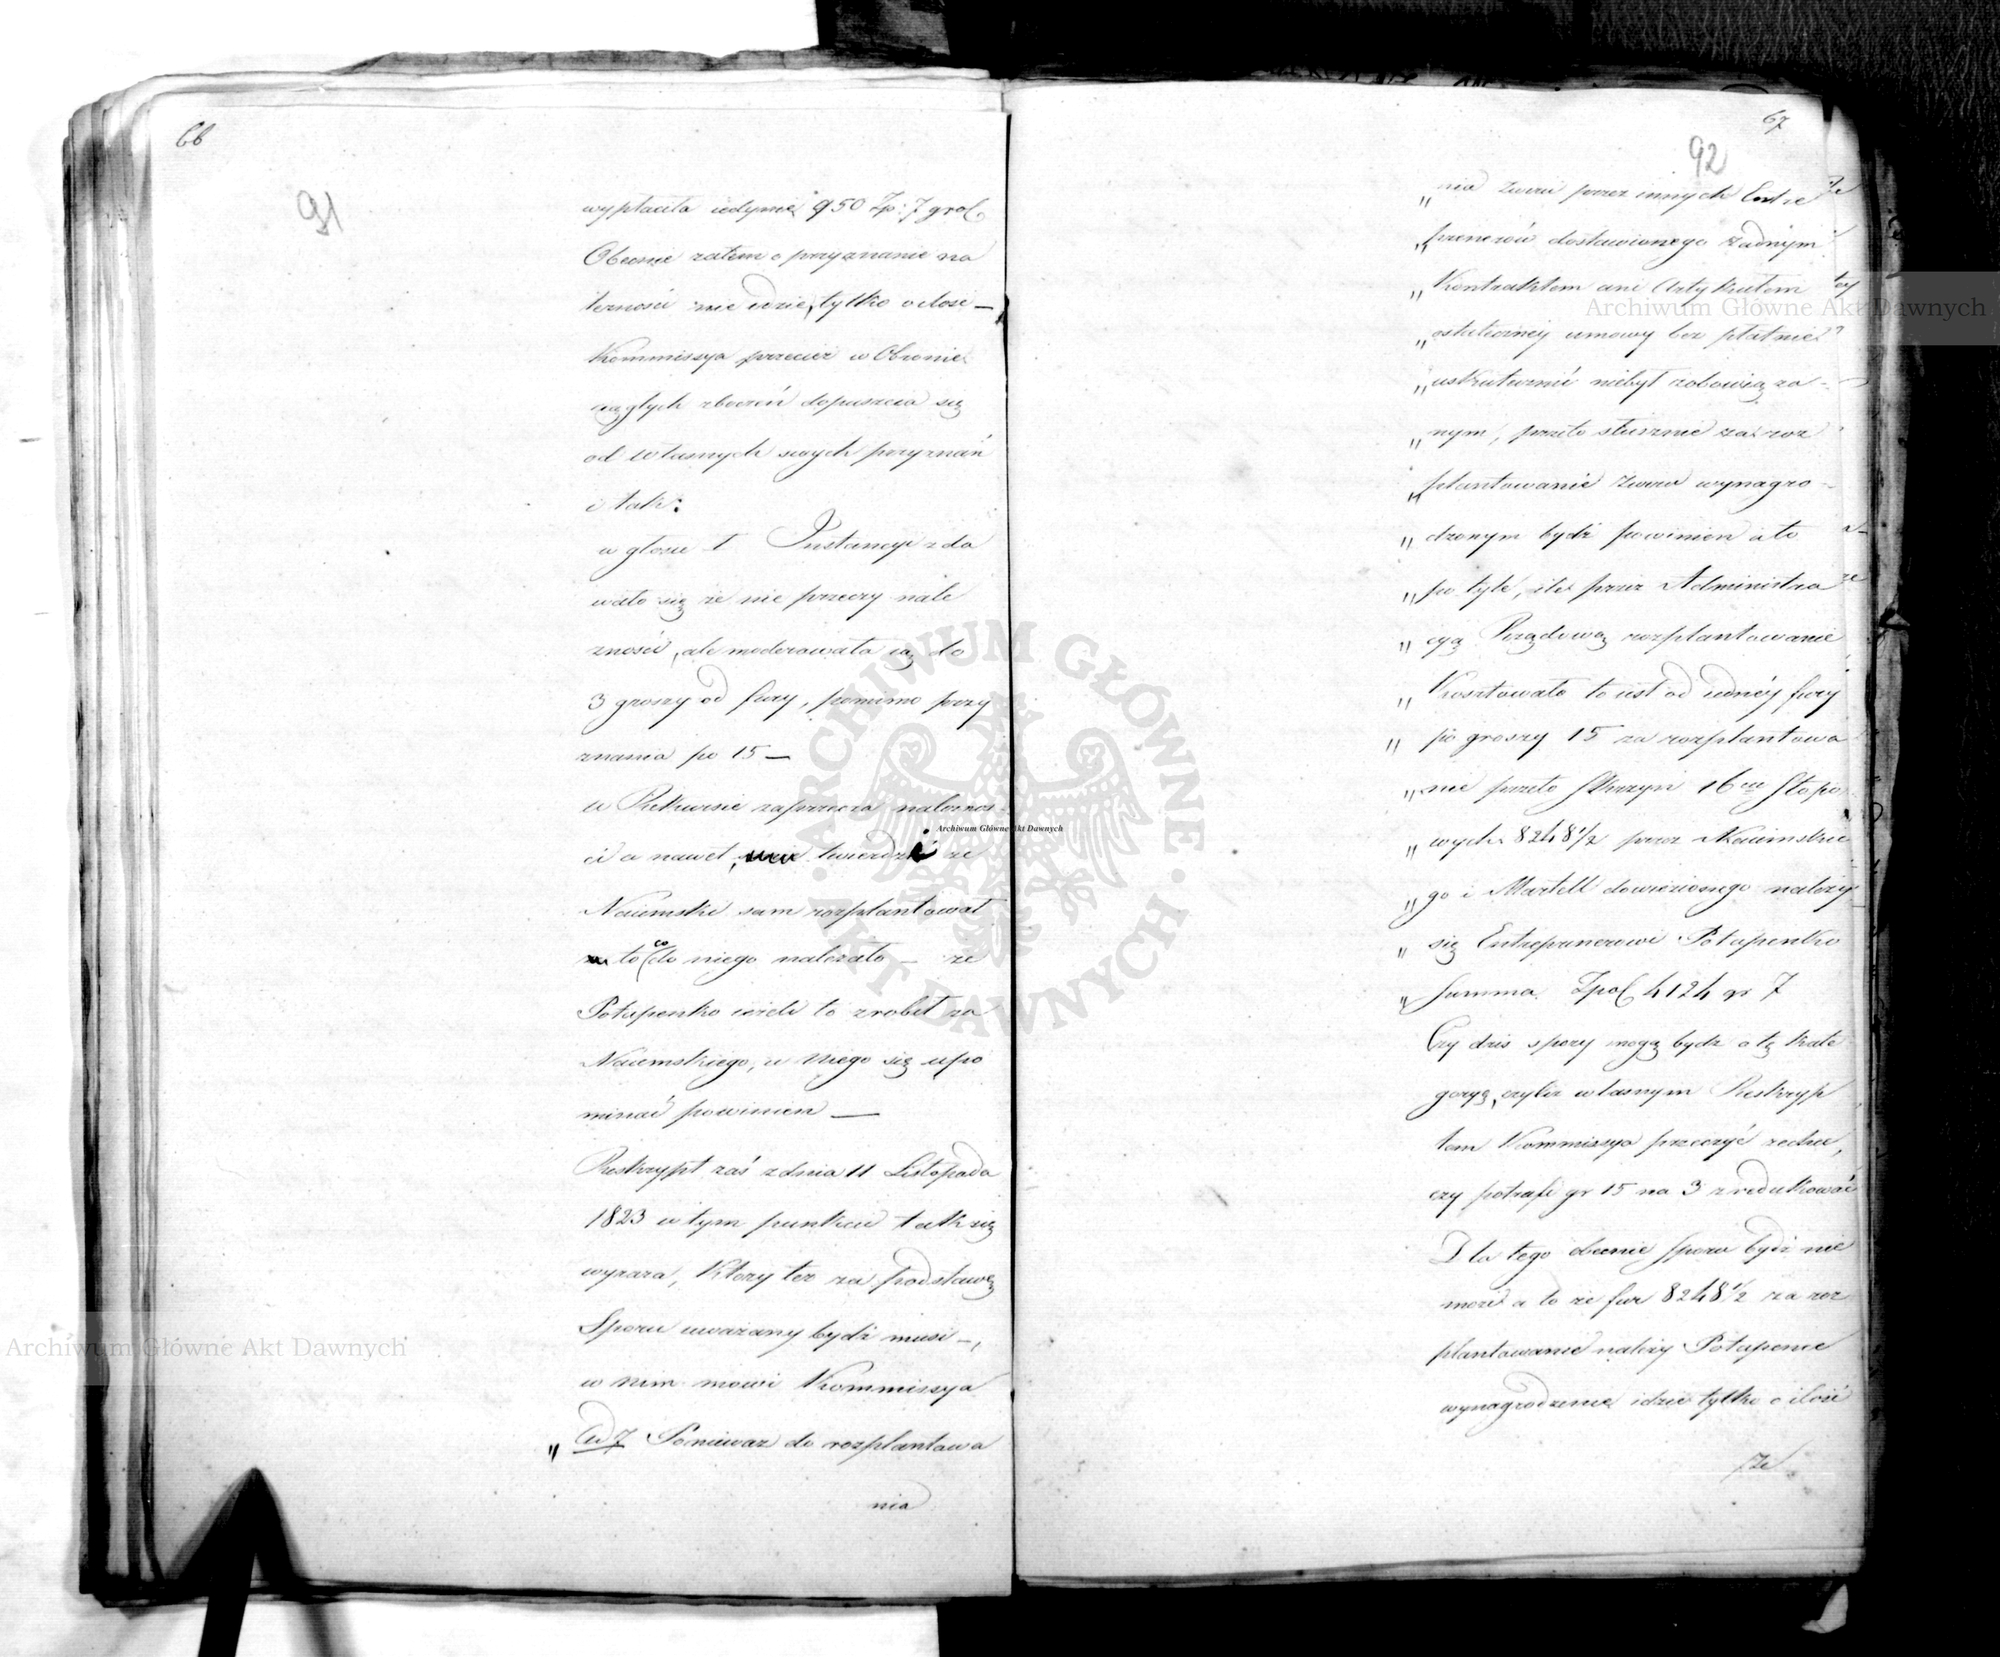 66
91
wypłaciła iedynie 950 Zp: 7 grol
Obecnie zatem o przyznanie na
leżności nie idzie, tylko o ilość —
Kommissya przecież w Obronie
ciągłych zboczeń dopuszcza się
od własnych swych przyznań
i tak:
w głosie I Instancyi zda
wało się że nie przeczy nale
żności, ale moderowała ią do
3 groszy od fury, pomimo przy
znania po 15 —
w Rekursie zaprzecza należnoś-
ci a nawet twierdzi że
Naiemski sam rozplantował
to co do niego należało — że
Potapenko ieżeli to zrobił za
Naiemskiego, u niego się upo
minać powinien —
Reskrypt zaś z dnia 11 Listopada
1823 w tym punkcie tak się
wyraża, który też za podstawę
Sporu uważany bydź musi —,
w nim mowi Kommissya
„ Ad 7 Ponieważ do rozplantowa
nia
67
92
„ nia żwiru przez innych Entre
„ prenerów dostawionego żadnym
„ Kontraktem ani Artykułem
„ ostateczney umowy bez płatnie
„ uskutecznić niebył zobowiąza-
„ nym, przeto słusznie za roz
„ plantowanie żwiru wynagro-
„ dzonym bydź powinien a to
„ po tyle, ile przez Administra
„ cyą Rządową rozplantowanie
„ Kosztowało to iest od iedney fury
„ po groszy 15 za rozplantowa
„ nie przeto Skrzyń 16tu Stopo
„ wych 8248½ przez Naiemskie
„ go i Martell dowiezionego należy
„ się Entreprenerowi Potapenko
„ Summa Zpol 4124 gr 7
Czy dziś spory mogą bydź o tę kate
goryą, czyliż własnym Reskryp
tem Kommissya przeczyć zechce,
czy potrafi gr 15 na 3 zredukować
Dla tego obecnie sporu bydź nie
może a to że fur 8248½ za roz
plantowanie należy Potapence
wynagrodzenie idzie tylko o ilość
że
Archiwum Główne Akt Dawnych
Archiwum Główne Akt Dawnych
Archiwum Główne Akt Dawnych
ARCHIWUM GŁÓWNE AKT DAWNYCH